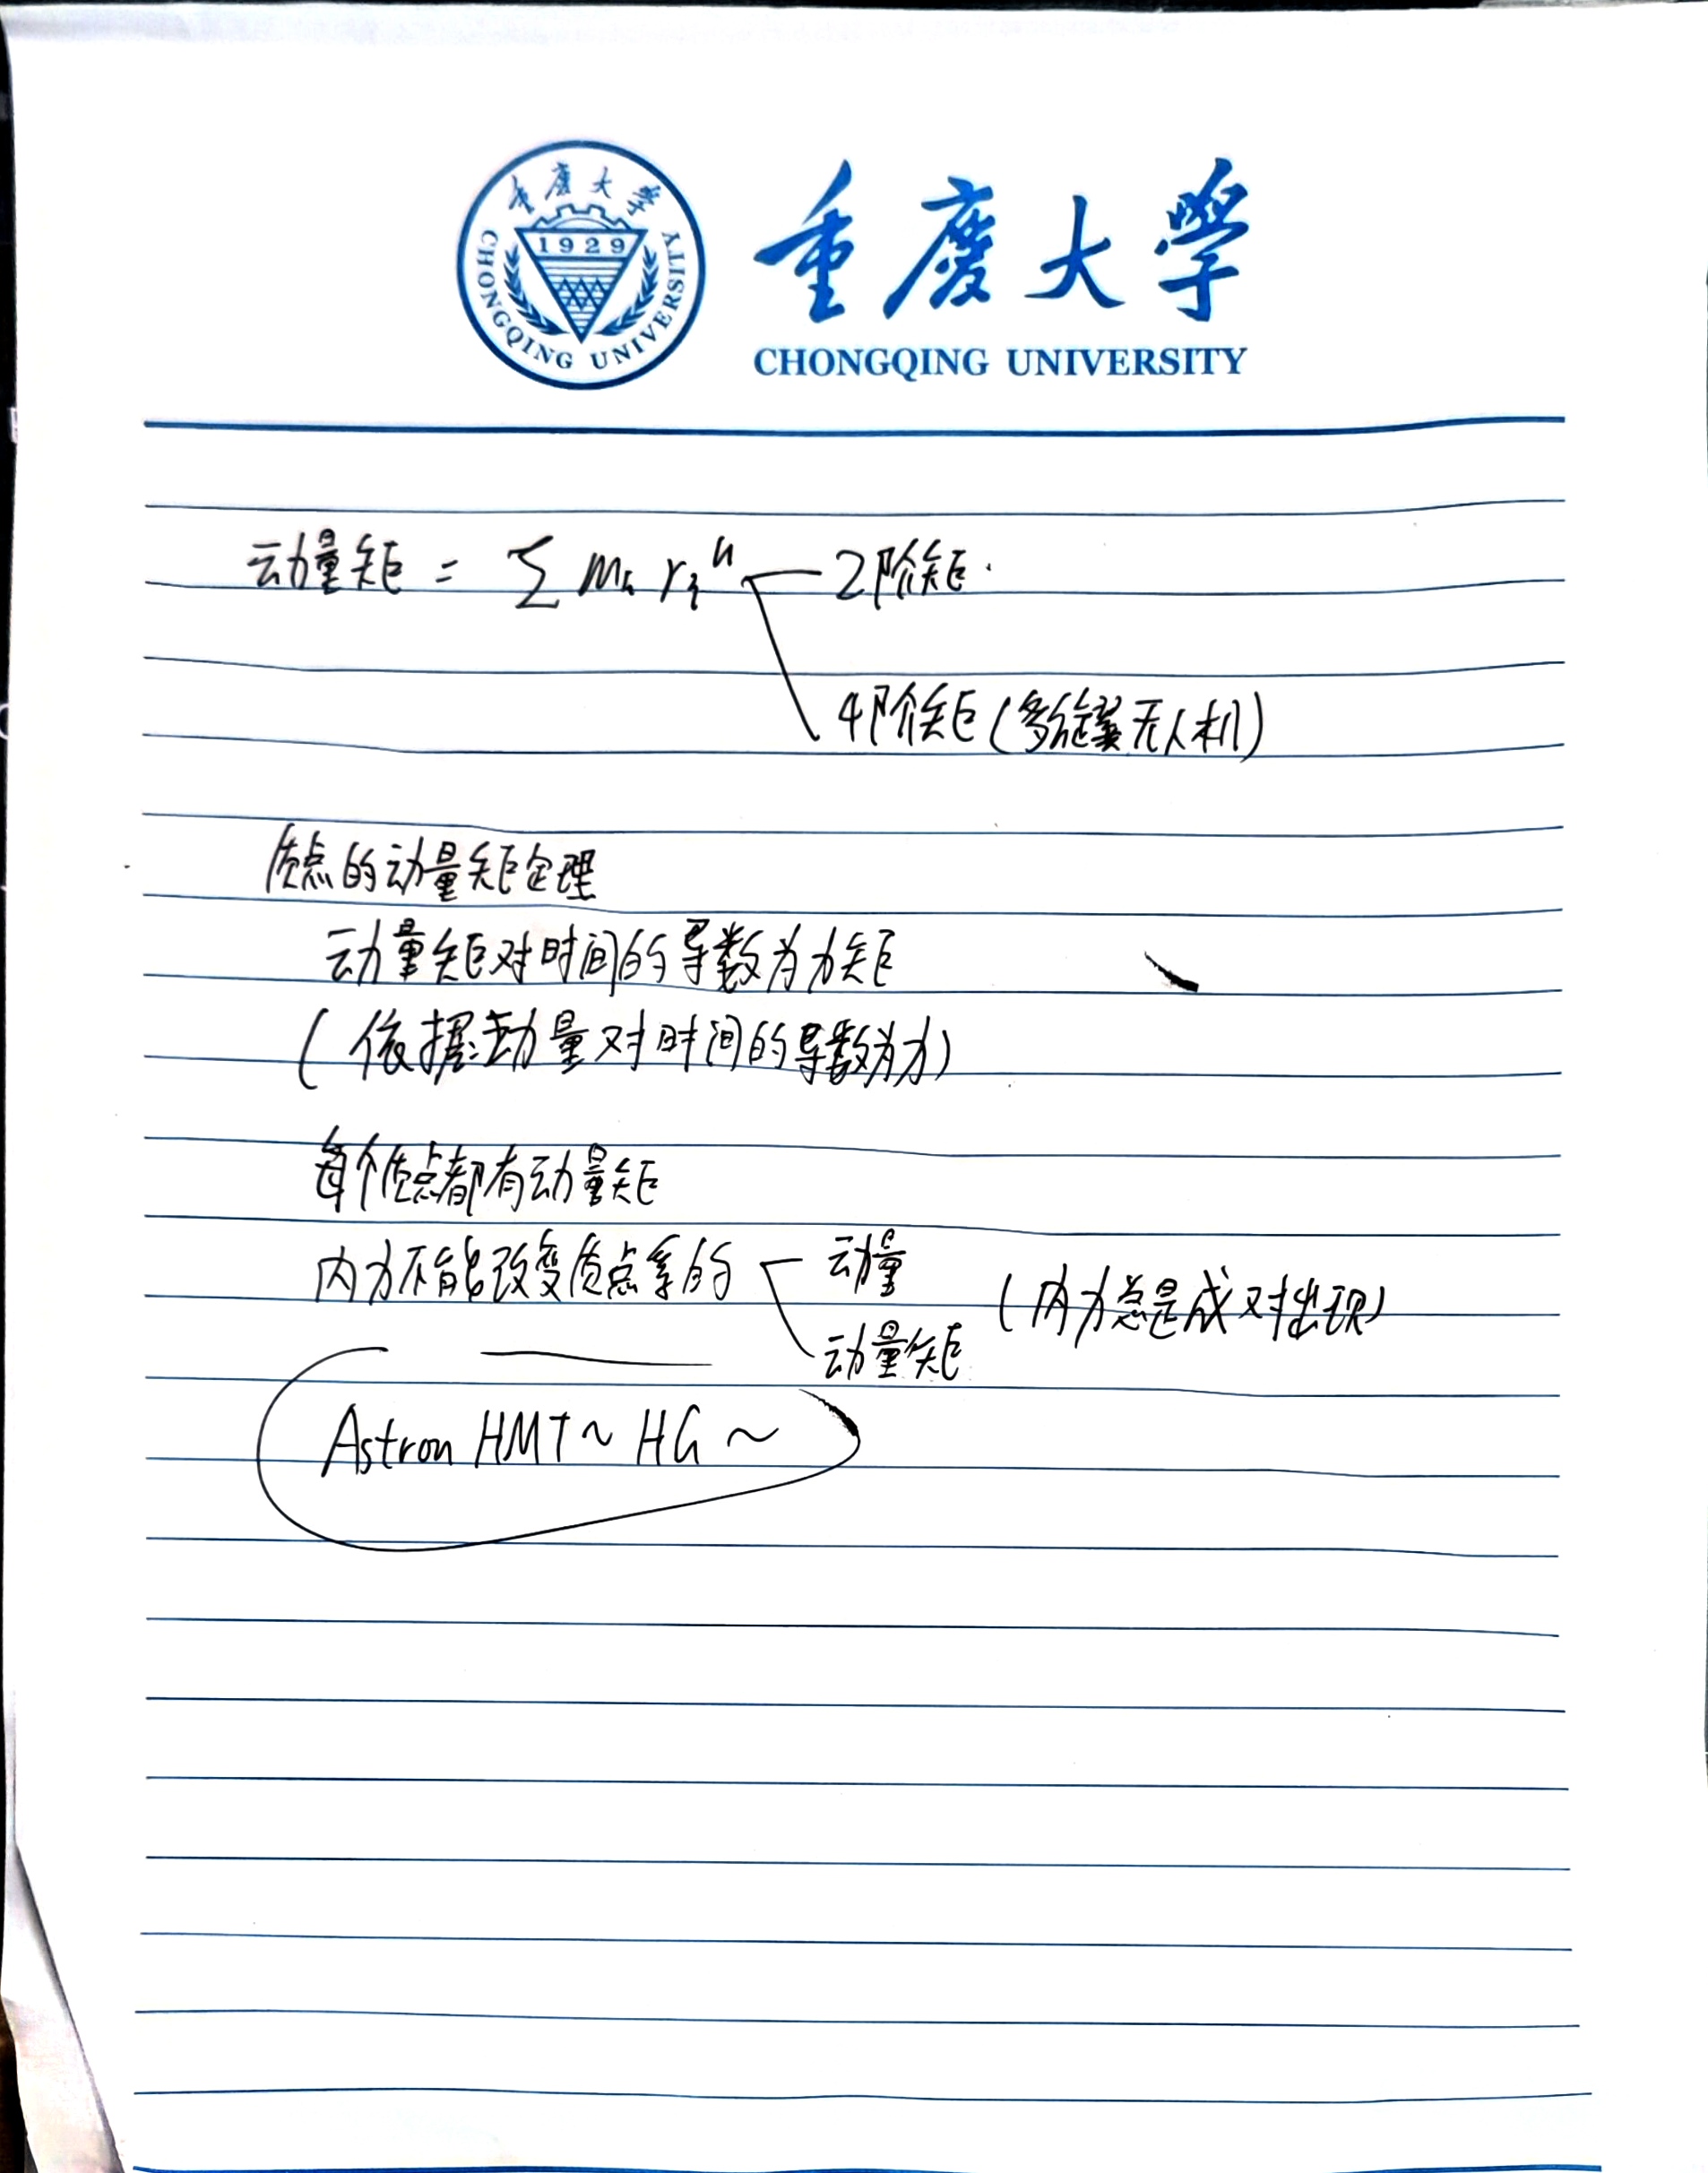 重庆大学
1929
CHONGQING UNIVERSITY
重慶大學
CHONGQING UNIVERSITY
动量矩 = ∑ mᵢ rᵢⁿ 2阶矩.
4阶矩(多旋翼无人机)
质点的动量矩定理
动量矩对时间的导数为力矩
(依据:动量对时间的导数为力)
每个质点都有动量矩
内力不能改变质点系的 动量
动量矩 (内力总是成对出现)
Astron HMT ~ HG ~